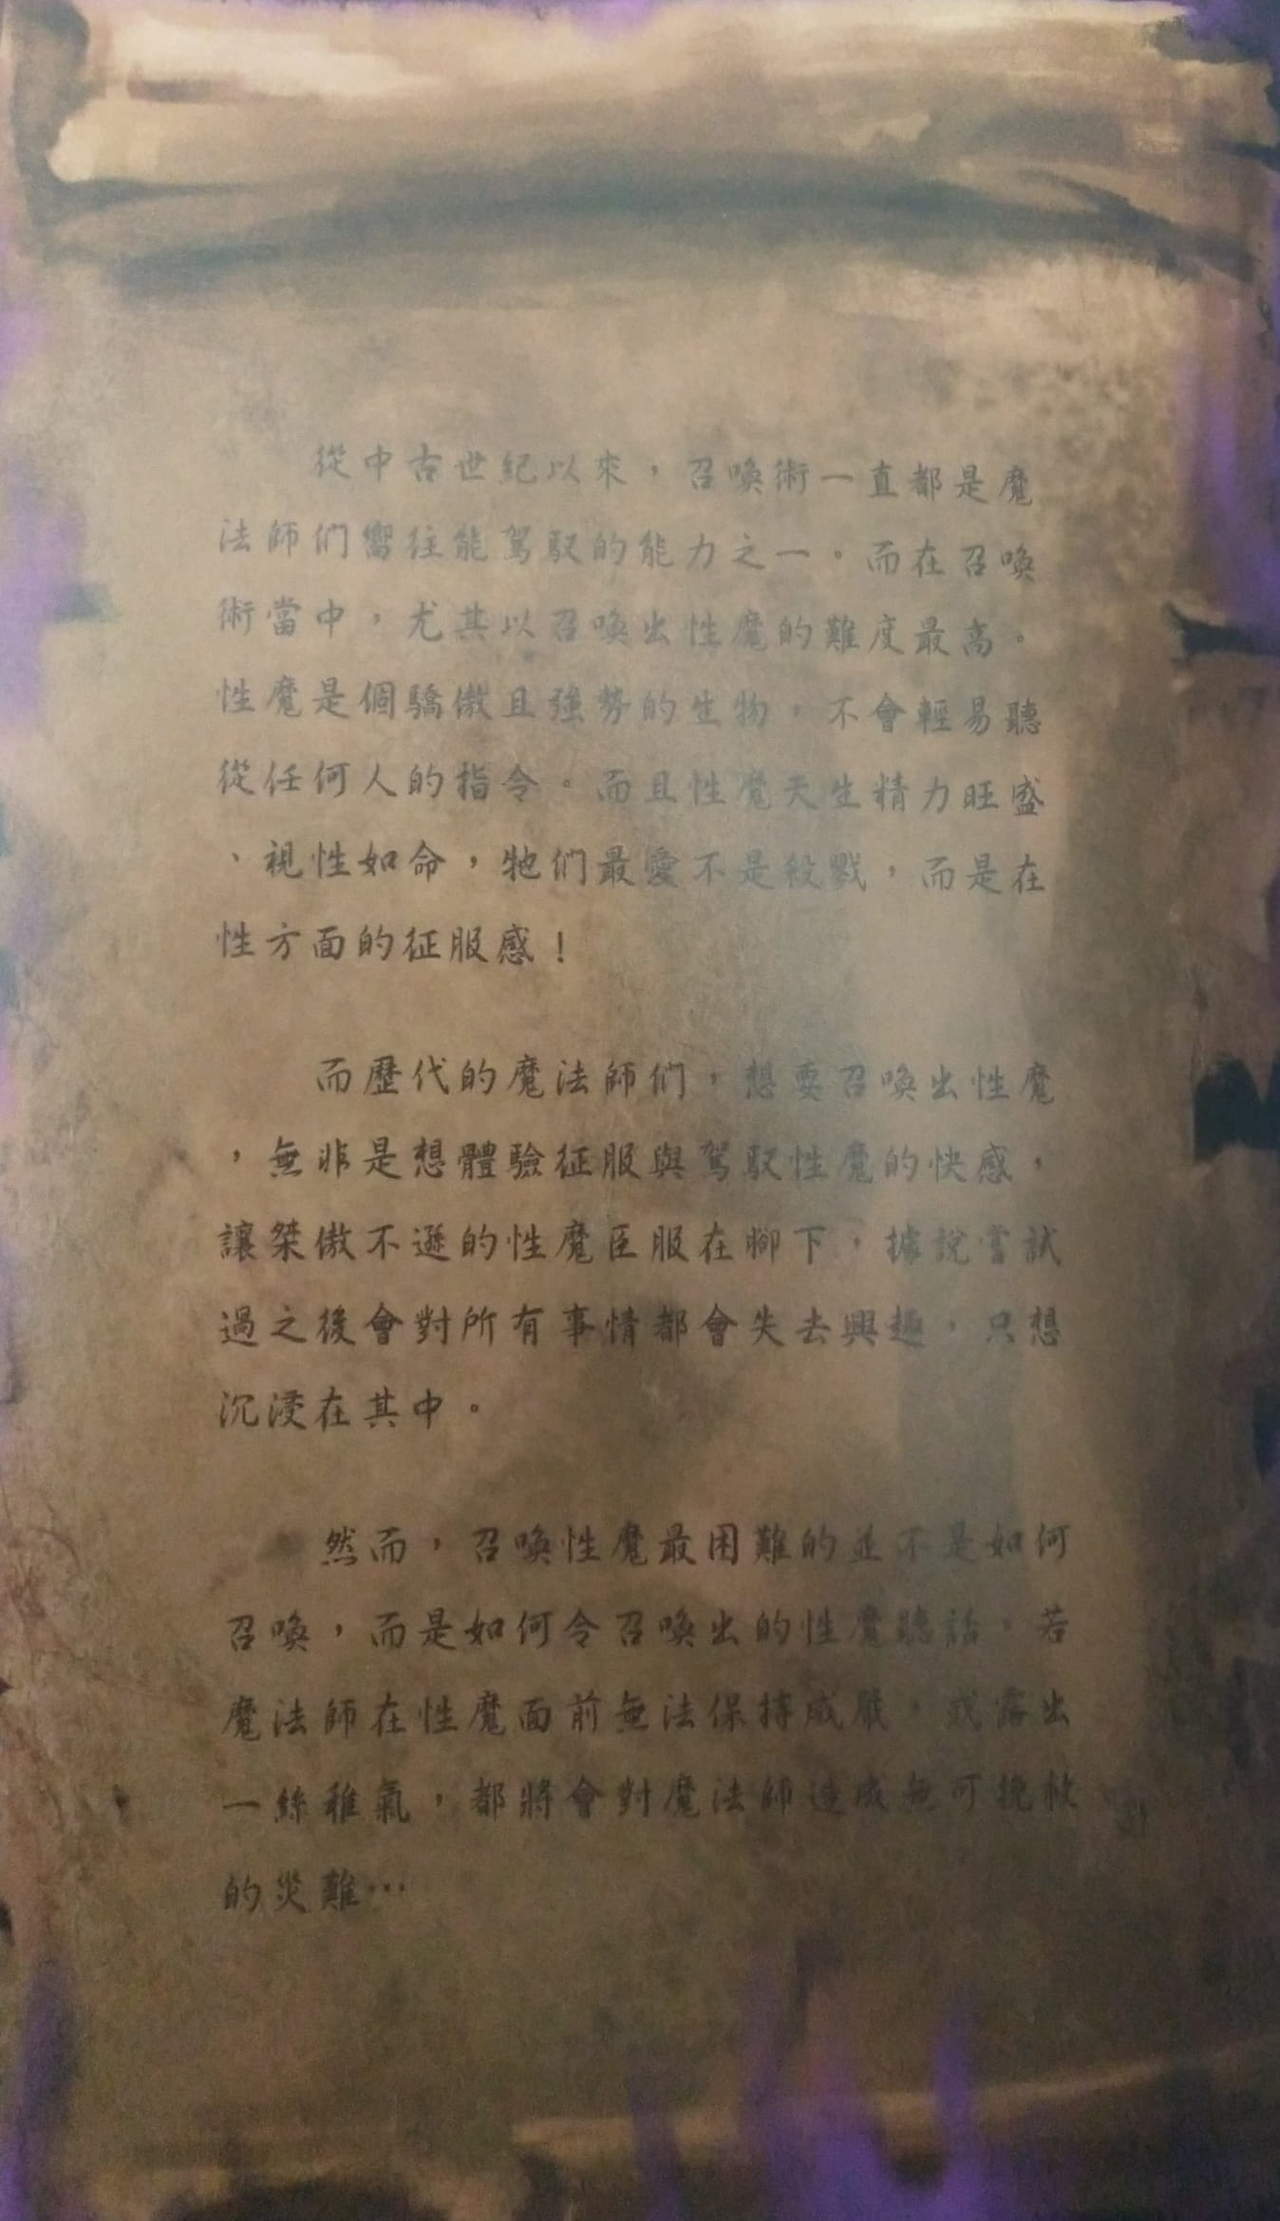 從中古世紀以來，召喚術一直都是魔
法師們嚮往能駕馭的能力之一。而在召喚
術當中，尤其以召喚出性魔的難度最高。
性魔是個驕傲且強勢的生物，不會輕易聽
從任何人的指令。而且性魔天生精力旺盛
、視性如命，牠們最愛不是殺戮，而是在
性方面的征服感！
而歷代的魔法師們，想要召喚出性魔
，無非是想體驗征服與駕馭性魔的快感，
讓桀傲不遜的性魔臣服在腳下，據說嘗試
過之後會對所有事情都會失去興趣，只想
沉浸在其中。
然而，召喚性魔最困難的並不是如何
召喚，而是如何令召喚出的性魔聽話，若
魔法師在性魔面前無法保持威嚴，或露出
一絲稚氣，都將會對魔法師造成無可挽救
的災難…